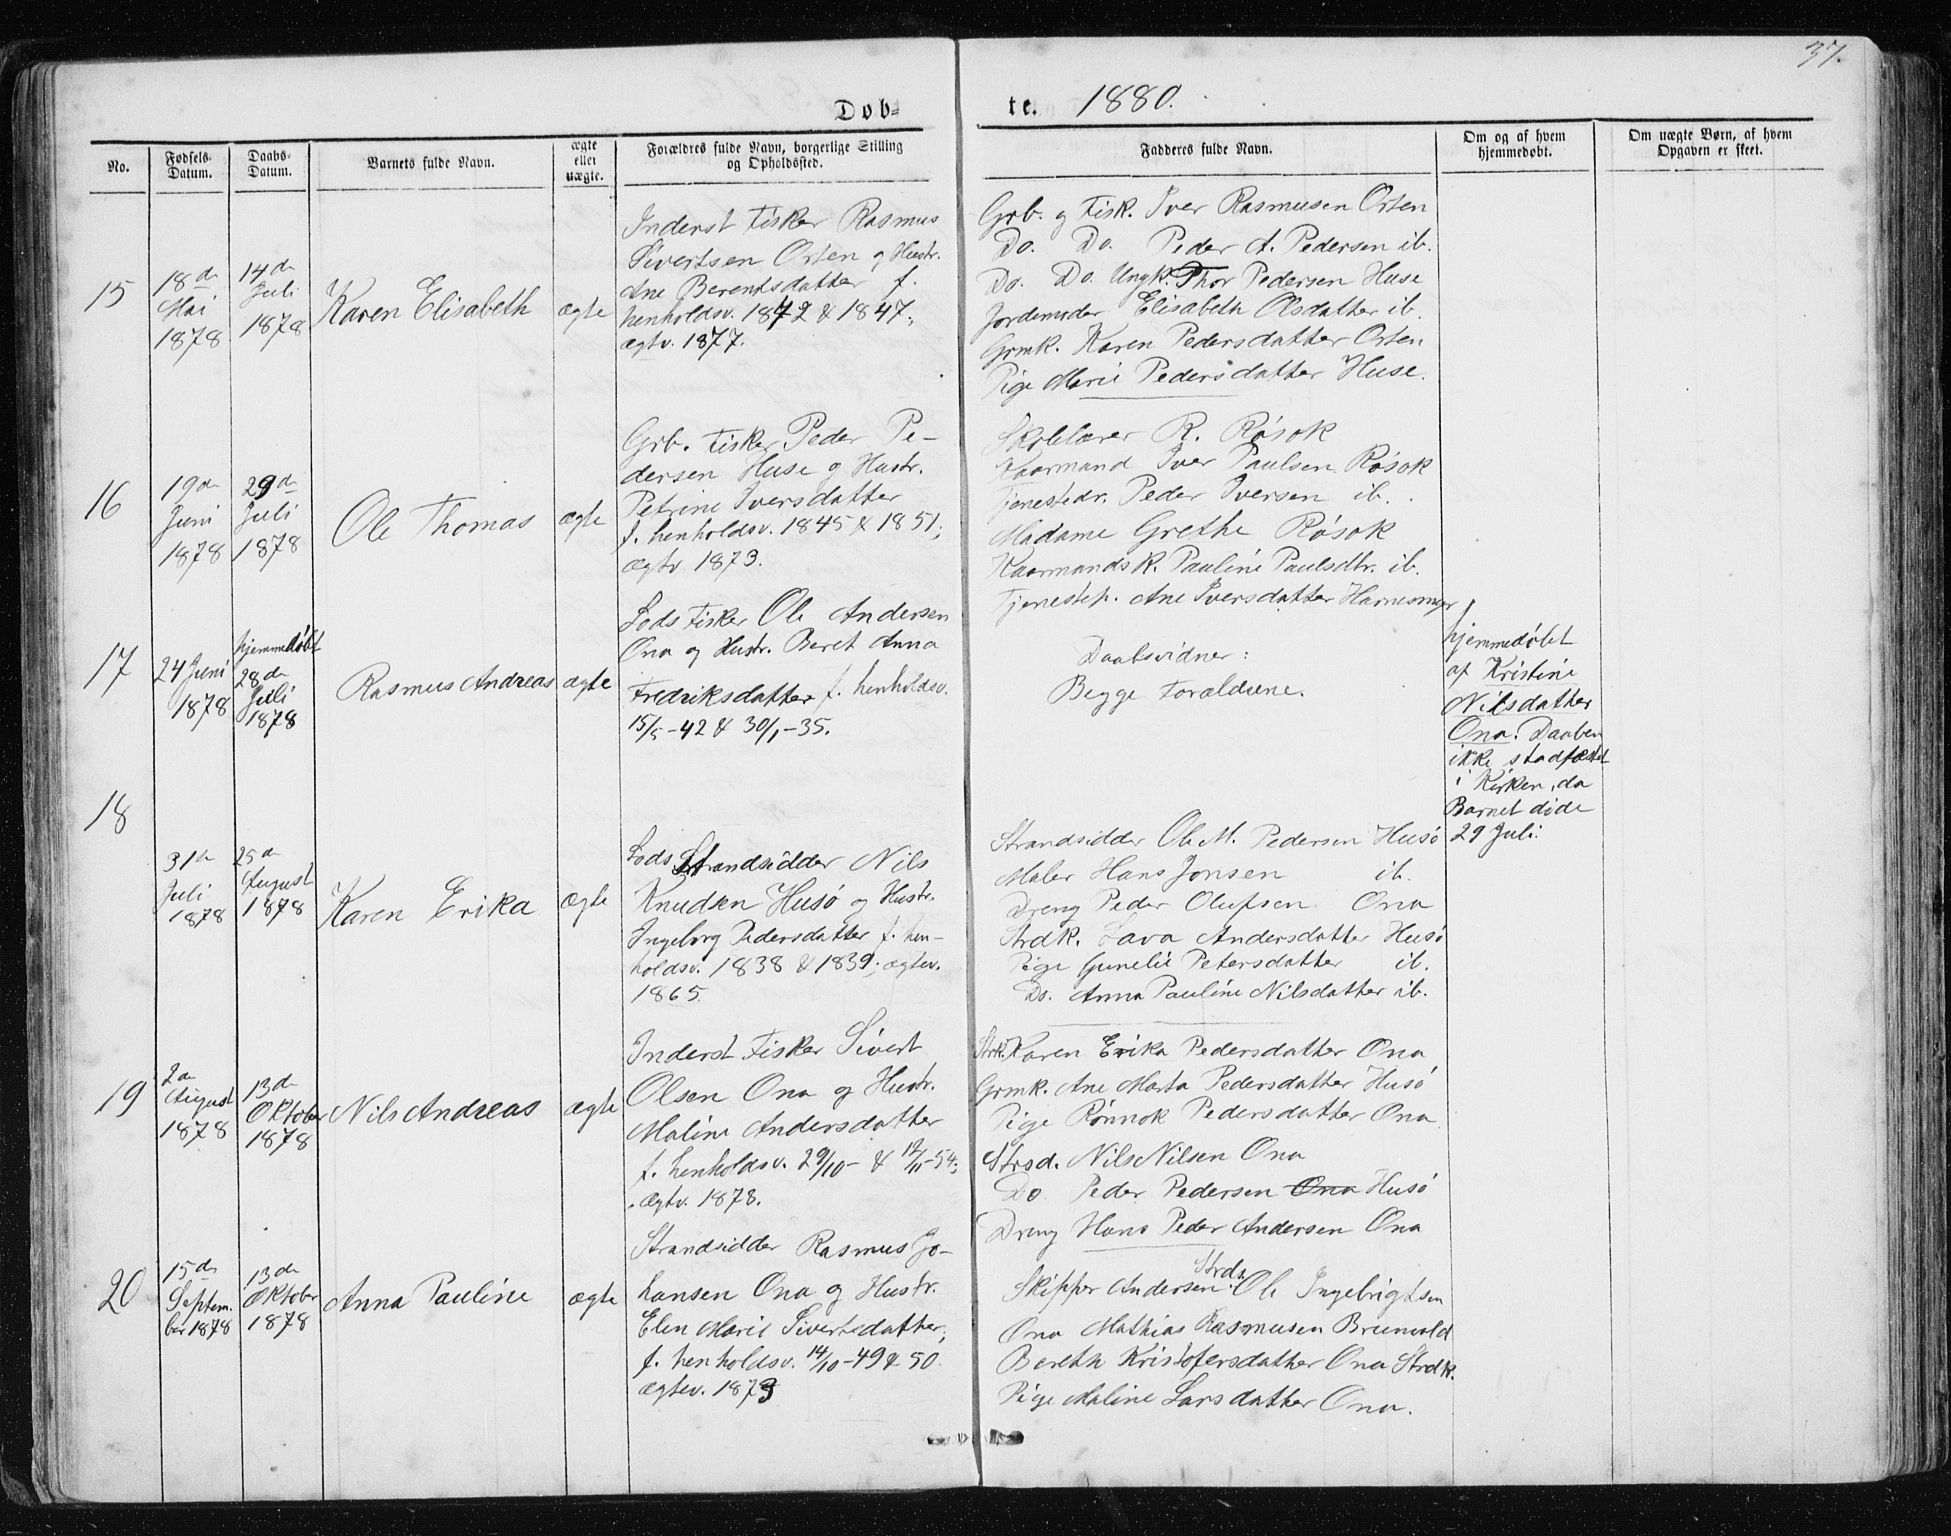 37.
Døb-
te. 1880.
No.
Fødsels-
Datum.
Daabs-
Datum.
Barnets fulde Navn.
ægte
eller
uægte.
Forældres fulde Navn, borgerlige Stilling
og Opholdssted.
Fadderes fulde Navn.
Om og af hvem
hjemmedøbt.
Om uægte Børn, af hvem
Opgaven er skeet.
15
18de
Mai
1878
14de
Juli
1878
Karen Elisabeth
ægte
Inderst Fisker Rasmus
Sivertsen Orten og Hustr.
Ane Berentsdatter f.
henholdsv. 1842 & 1847;
ægtv. 1877.
Grb. og Fisk. Iver Rasmusen Orten
Do. Do. Peder A. Pedersen ib.
Do. Do. Ungk. Thor Pedersen Huse
Jordemoder Elisabeth Olsdatter ib.
Grmk. Karen Pedersdatter Orten
Pige Marie Pedersdatter Huse.
16
19de
Juni
1878
29de
Juli
1878
Ole Thomas
ægte
Grb. Fisker Peder Pe-
dersen Huse og Hustr.
Petrine Iversdatter
f. henholdsv. 1845 & 1851;
ægtv 1873.
Skolelærer R. Røsok
Kaarmand Iver Paulsen Røsok
Tjenestedr. Peder Iversen ib.
Madame Grethe Røsok
Kaarmandsk. Pauline Paulsdtr. ib.
Tjenestep. Ane Iversdatter Harnesmyr
17
24 Juni
1878
hjemmedøbt
28de
Juli
1878
Rasmus Andreas
ægte
Lods Fisker Ole Andersen
Ona og Hustr. Beret Anna
Fredriksdatter f. henholdsv.
15/5-42 & 30/1-35.
Daabsvidner:
Begge Forældrene.
hjemmedøbt
af Kristine
Nilsdatter
Ona. Daaben
ikke stadfæstet
i Kirken, da
Barnet døde
29 Juli.
18
31te
Juli
1878
25de
August
1878
Karen Erika
ægte
Lods Strandsidder Nils
Knudsen Husø og Hustr.
Ingeborg Pedersdatter f. hen-
holdsv. 1838 & 1839; ægtev.
1865.
Strandsidder Ole M. Pedersen Husø
Maler Hans Jonsen ib.
Dreng Peder Olufsen Ona
Strdk. Lava Andersdatter Husø
Pige Gunelie Petersdatter ib.
Do. Anna Pauline Nilsdatter ib.
19
2de
August
1878
13de
Oktober
1878
Nils Andreas
ægte
Inderst Fisker Sivert
Olsen Ona og Hustr.
Maline Andersdatter
f. henholdsv. 29/10- & 12/11-54;
ægtv. 1878.
Strk. Karen Erika Pedersdatter Ona
Grmk. Ane Marta Pedersdatter Husø
Pige Rønnok Pedersdatter Ona
Strsd. Nils Nilsen Ona
Do Peder Pedersen Ona Husø
Dreng Hans Peder Andersen Ona
20
15de
Septem-
ber 1878
13de
Oktober
1878
Anna Pauline
ægte
Strandsidder Rasmus Jo-
hansen Ona og Hustr.
Elen Marie Sivertsdatter;
f. henholdsv. 14/10-49 & 50.
ægtev. 1873
Strds.
Skipper Andersen Ole Ingebrigtsen
Ona Mathias Rasmusen Brunvold
Bereth Kristofersdatter Ona Strdk.
Pige Maline Larsdatter Ona.